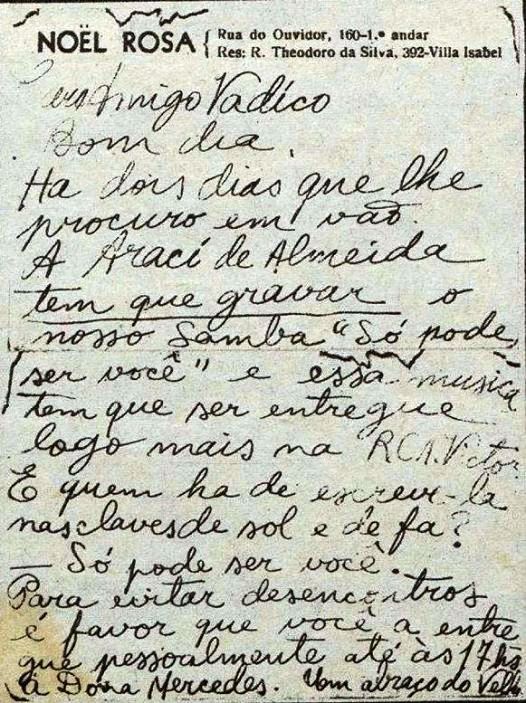 NOËL ROSA
Rua do Ouvidor, 160-1.º andar
Res: R. Theodoro da Silva, 392-Villa Isabel
Amigo Vadico
Bom dia,
Ha dois dias que lhe
procuro em vaõ.
A Araci de Almeida
tem que gravar o
nosso Samba "Só pode
ser você" e essa musica
tem que ser entregue
logo mais na RCA. Victor
E quem ha de escrevê-la
nas claves de sol e de fa?
— Só pode ser você.
Para evitar desencontros
é favor que você a entre
gue pessoalmente até às 17 hs
à Dona Mercedes. Um abraço do Velho